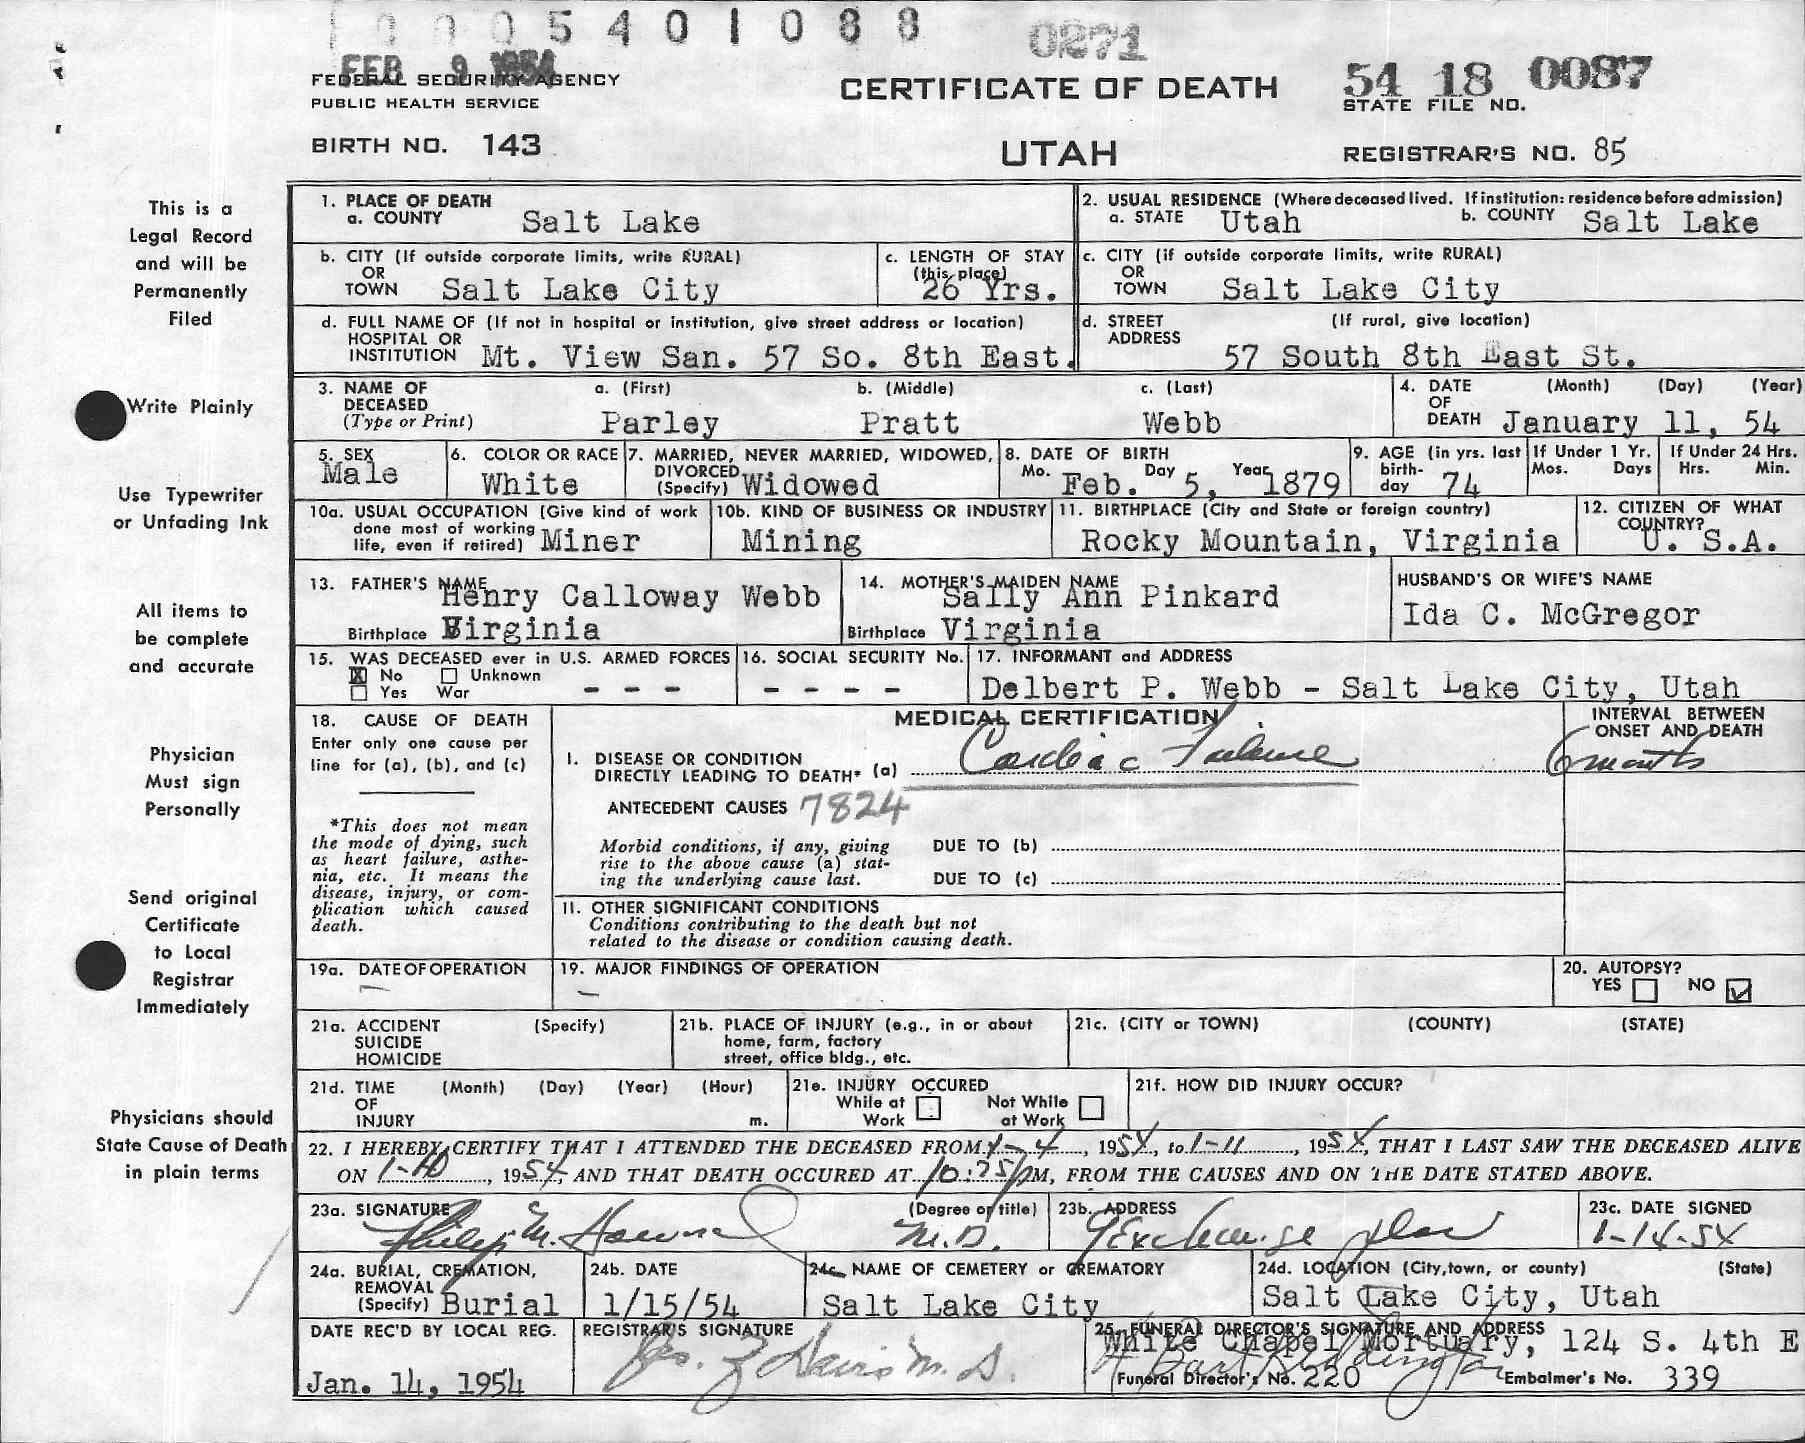 0005401088
0271
FEB 9 1954
FEDERAL SECURITY AGENCY
PUBLIC HEALTH SERVICE
CERTIFICATE OF DEATH
54 18 0087
STATE FILE NO.
BIRTH NO. 143
UTAH
REGISTRAR'S NO. 85
This is a
Legal Record
and will be
Permanently
Filed
Write Plainly
Use Typewriter
or Unfading Ink
All items to
be complete
and accurate
Physician
Must sign
Personally
Send original
Certificate
to Local
Registrar
Immediately
Physicians should
State Cause of Death
in plain terms
1. PLACE OF DEATH
a. COUNTY Salt Lake
2. USUAL RESIDENCE (Where deceased lived. If institution: residence before admission)
a. STATE Utah b. COUNTY Salt Lake
b. CITY (If outside corporate limits, write RURAL)
OR
TOWN Salt Lake City
c. LENGTH OF STAY
(this place)
26 Yrs.
c. CITY (if outside corporate limits, write RURAL)
OR
TOWN Salt Lake City
d. FULL NAME OF (If not in hospital or institution, give street address or location)
HOSPITAL OR
INSTITUTION Mt. View San. 57 So. 8th East.
d. STREET (If rural, give location)
ADDRESS
57 South 8th East St.
3. NAME OF a. (First) b. (Middle) c. (Last)
DECEASED
(Type or Print) Parley Pratt Webb
4. DATE (Month) (Day) (Year)
OF
DEATH January 11, 54
5. SEX
Male
6. COLOR OR RACE
White
7. MARRIED, NEVER MARRIED, WIDOWED,
DIVORCED
(Specify) Widowed
8. DATE OF BIRTH
Mo. Day Year
Feb. 5, 1879
9. AGE (in yrs. last
birth-
day 74
If Under 1 Yr.
Mos. Days
If Under 24 Hrs.
Hrs. Min.
10a. USUAL OCCUPATION (Give kind of work
done most of working
life, even if retired) Miner
10b. KIND OF BUSINESS OR INDUSTRY
Mining
11. BIRTHPLACE (City and State or foreign country)
Rocky Mountain, Virginia
12. CITIZEN OF WHAT
COUNTRY?
U. S.A.
13. FATHER'S NAME
Henry Calloway Webb
Birthplace Virginia
14. MOTHER'S MAIDEN NAME
Sally Ann Pinkard
Birthplace Virginia
HUSBAND'S OR WIFE'S NAME
Ida C. McGregor
15. WAS DECEASED ever in U.S. ARMED FORCES
X No Unknown
Yes War - - -
16. SOCIAL SECURITY No.
- - - -
17. INFORMANT and ADDRESS
Delbert P. Webb - Salt Lake City, Utah
18. CAUSE OF DEATH
Enter only one cause per
line for (a), (b), and (c)
*This does not mean
the mode of dying, such
as heart failure, asthe-
nia, etc. It means the
disease, injury, or com-
plication which caused
death.
MEDICAL CERTIFICATION
INTERVAL BETWEEN
ONSET AND DEATH
I. DISEASE OR CONDITION
DIRECTLY LEADING TO DEATH* (a) Cardiac Failure 6 months
ANTECEDENT CAUSES 7824
Morbid conditions, if any, giving
rise to the above cause (a) stat-
ing the underlying cause last.
DUE TO (b)
DUE TO (c)
11. OTHER SIGNIFICANT CONDITIONS
Conditions contributing to the death but not
related to the disease or condition causing death.
19a. DATE OF OPERATION
—
19. MAJOR FINDINGS OF OPERATION
—
20. AUTOPSY?
YES NO ✓
21a. ACCIDENT (Specify)
SUICIDE
HOMICIDE
21b. PLACE OF INJURY (e.g., in or about
home, farm, factory
street, office bldg., etc.
21c. (CITY or TOWN) (COUNTY) (STATE)
21d. TIME (Month) (Day) (Year) (Hour)
OF
INJURY m.
21e. INJURY OCCURED
While at Work
Not While at Work
21f. HOW DID INJURY OCCUR?
22. I HEREBY CERTIFY THAT I ATTENDED THE DECEASED FROM 1-4, 1954, to 1-11, 1954, THAT I LAST SAW THE DECEASED ALIVE
ON 1-10, 1954, AND THAT DEATH OCCURED AT 10:25 PM, FROM THE CAUSES AND ON THE DATE STATED ABOVE.
23a. SIGNATURE (Degree or title)
Philip M. M.D.
23b. ADDRESS
Exchange
23c. DATE SIGNED
1-14-54
24a. BURIAL, CREMATION,
REMOVAL
(Specify) Burial
24b. DATE
1/15/54
24c. NAME OF CEMETERY or CREMATORY
Salt Lake City
24d. LOCATION (City, town, or county) (State)
Salt Lake City, Utah
DATE REC'D BY LOCAL REG.
Jan. 14, 1954
REGISTRAR'S SIGNATURE
M.D.
25. FUNERAL DIRECTOR'S SIGNATURE AND ADDRESS
White Chapel Mortuary, 124 S. 4th E
Funeral Director's No. 220 Embalmer's No. 339